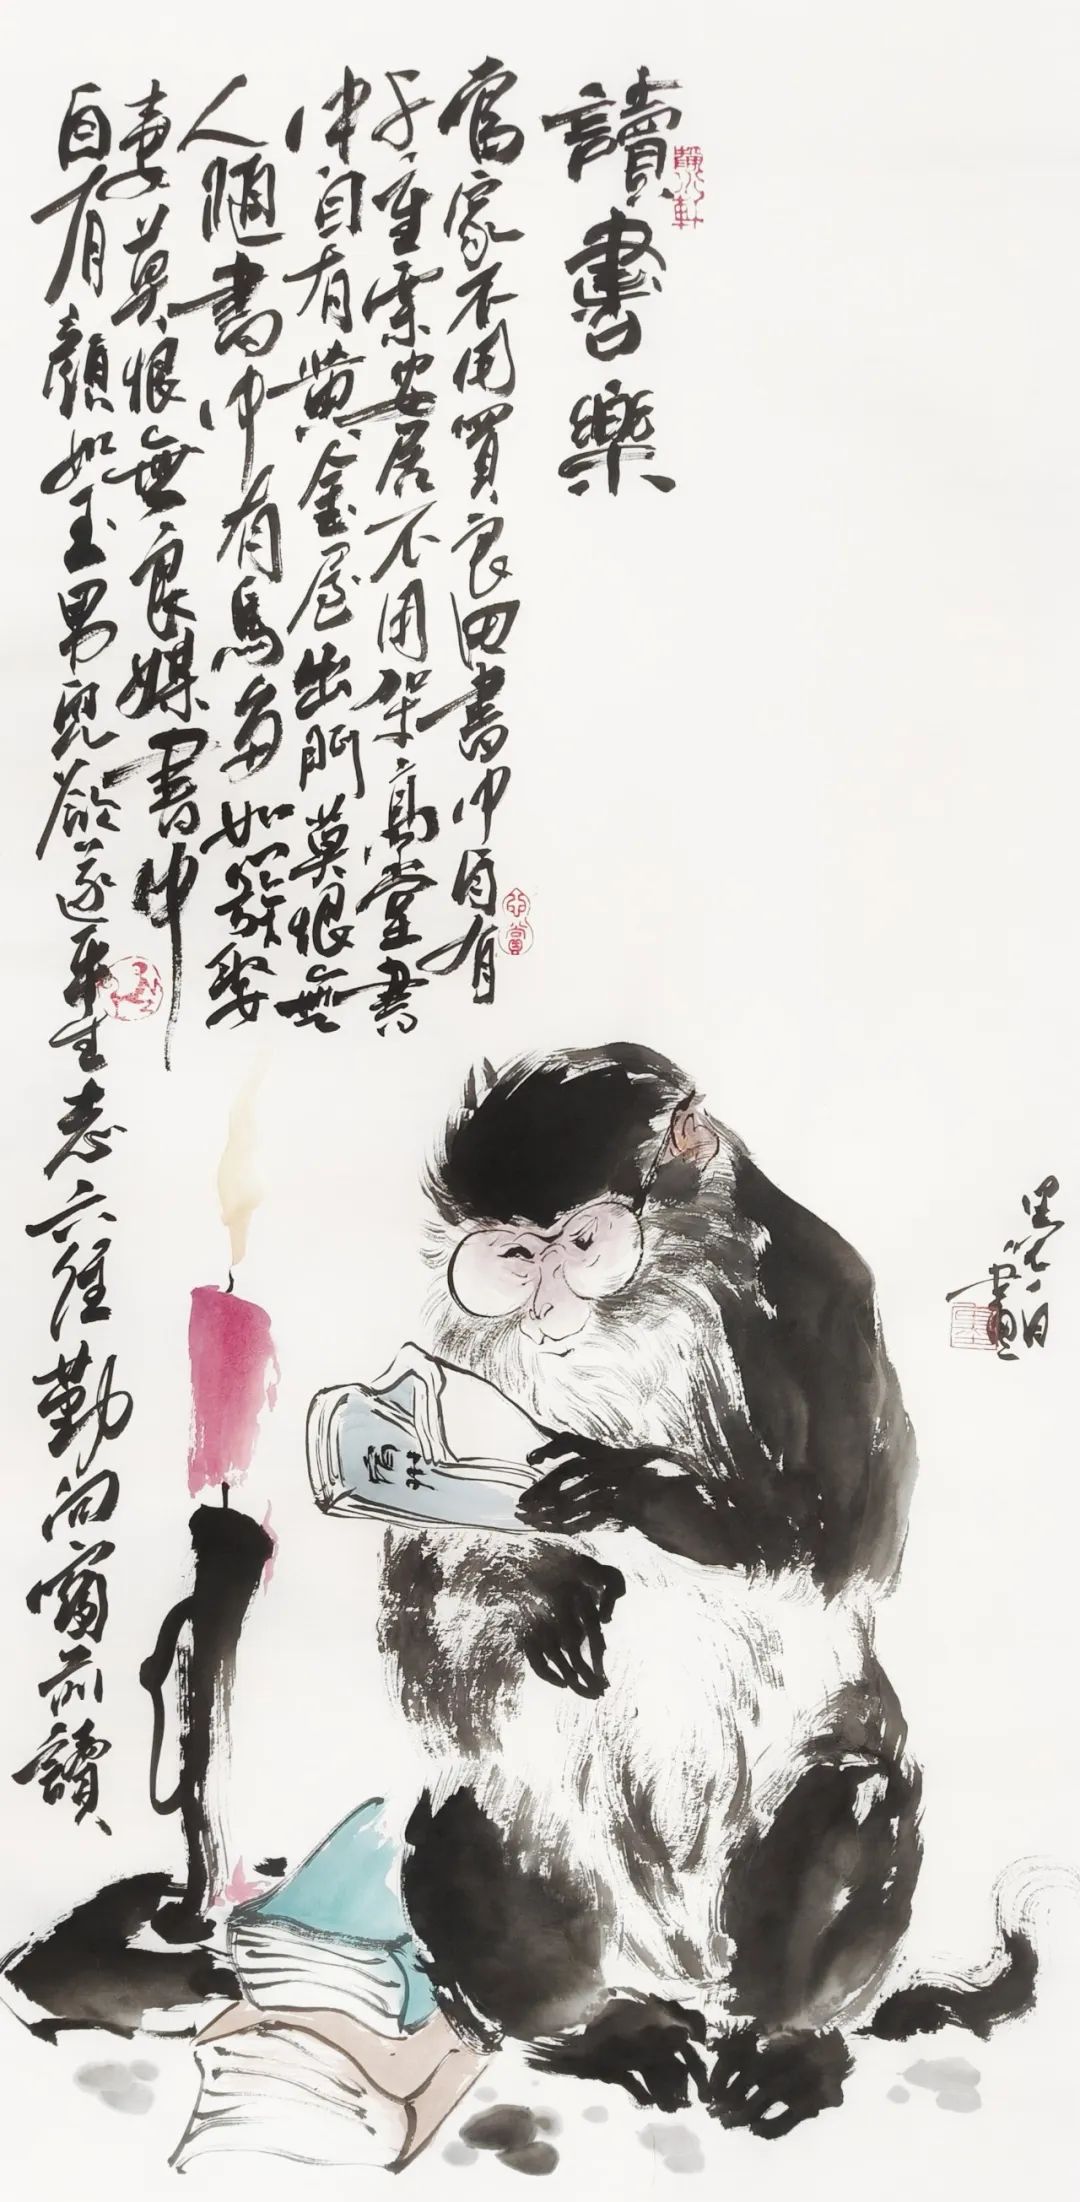 讀書樂
富家不用買良田書中自有
千重粟安居不用架高堂書
中自有黃金屋出門莫恨無
人隨書中有馬多如簇娶
妻莫恨無良媒書中
自有顏如玉男兒欲遂平生志六經勤向窗前讀
畫